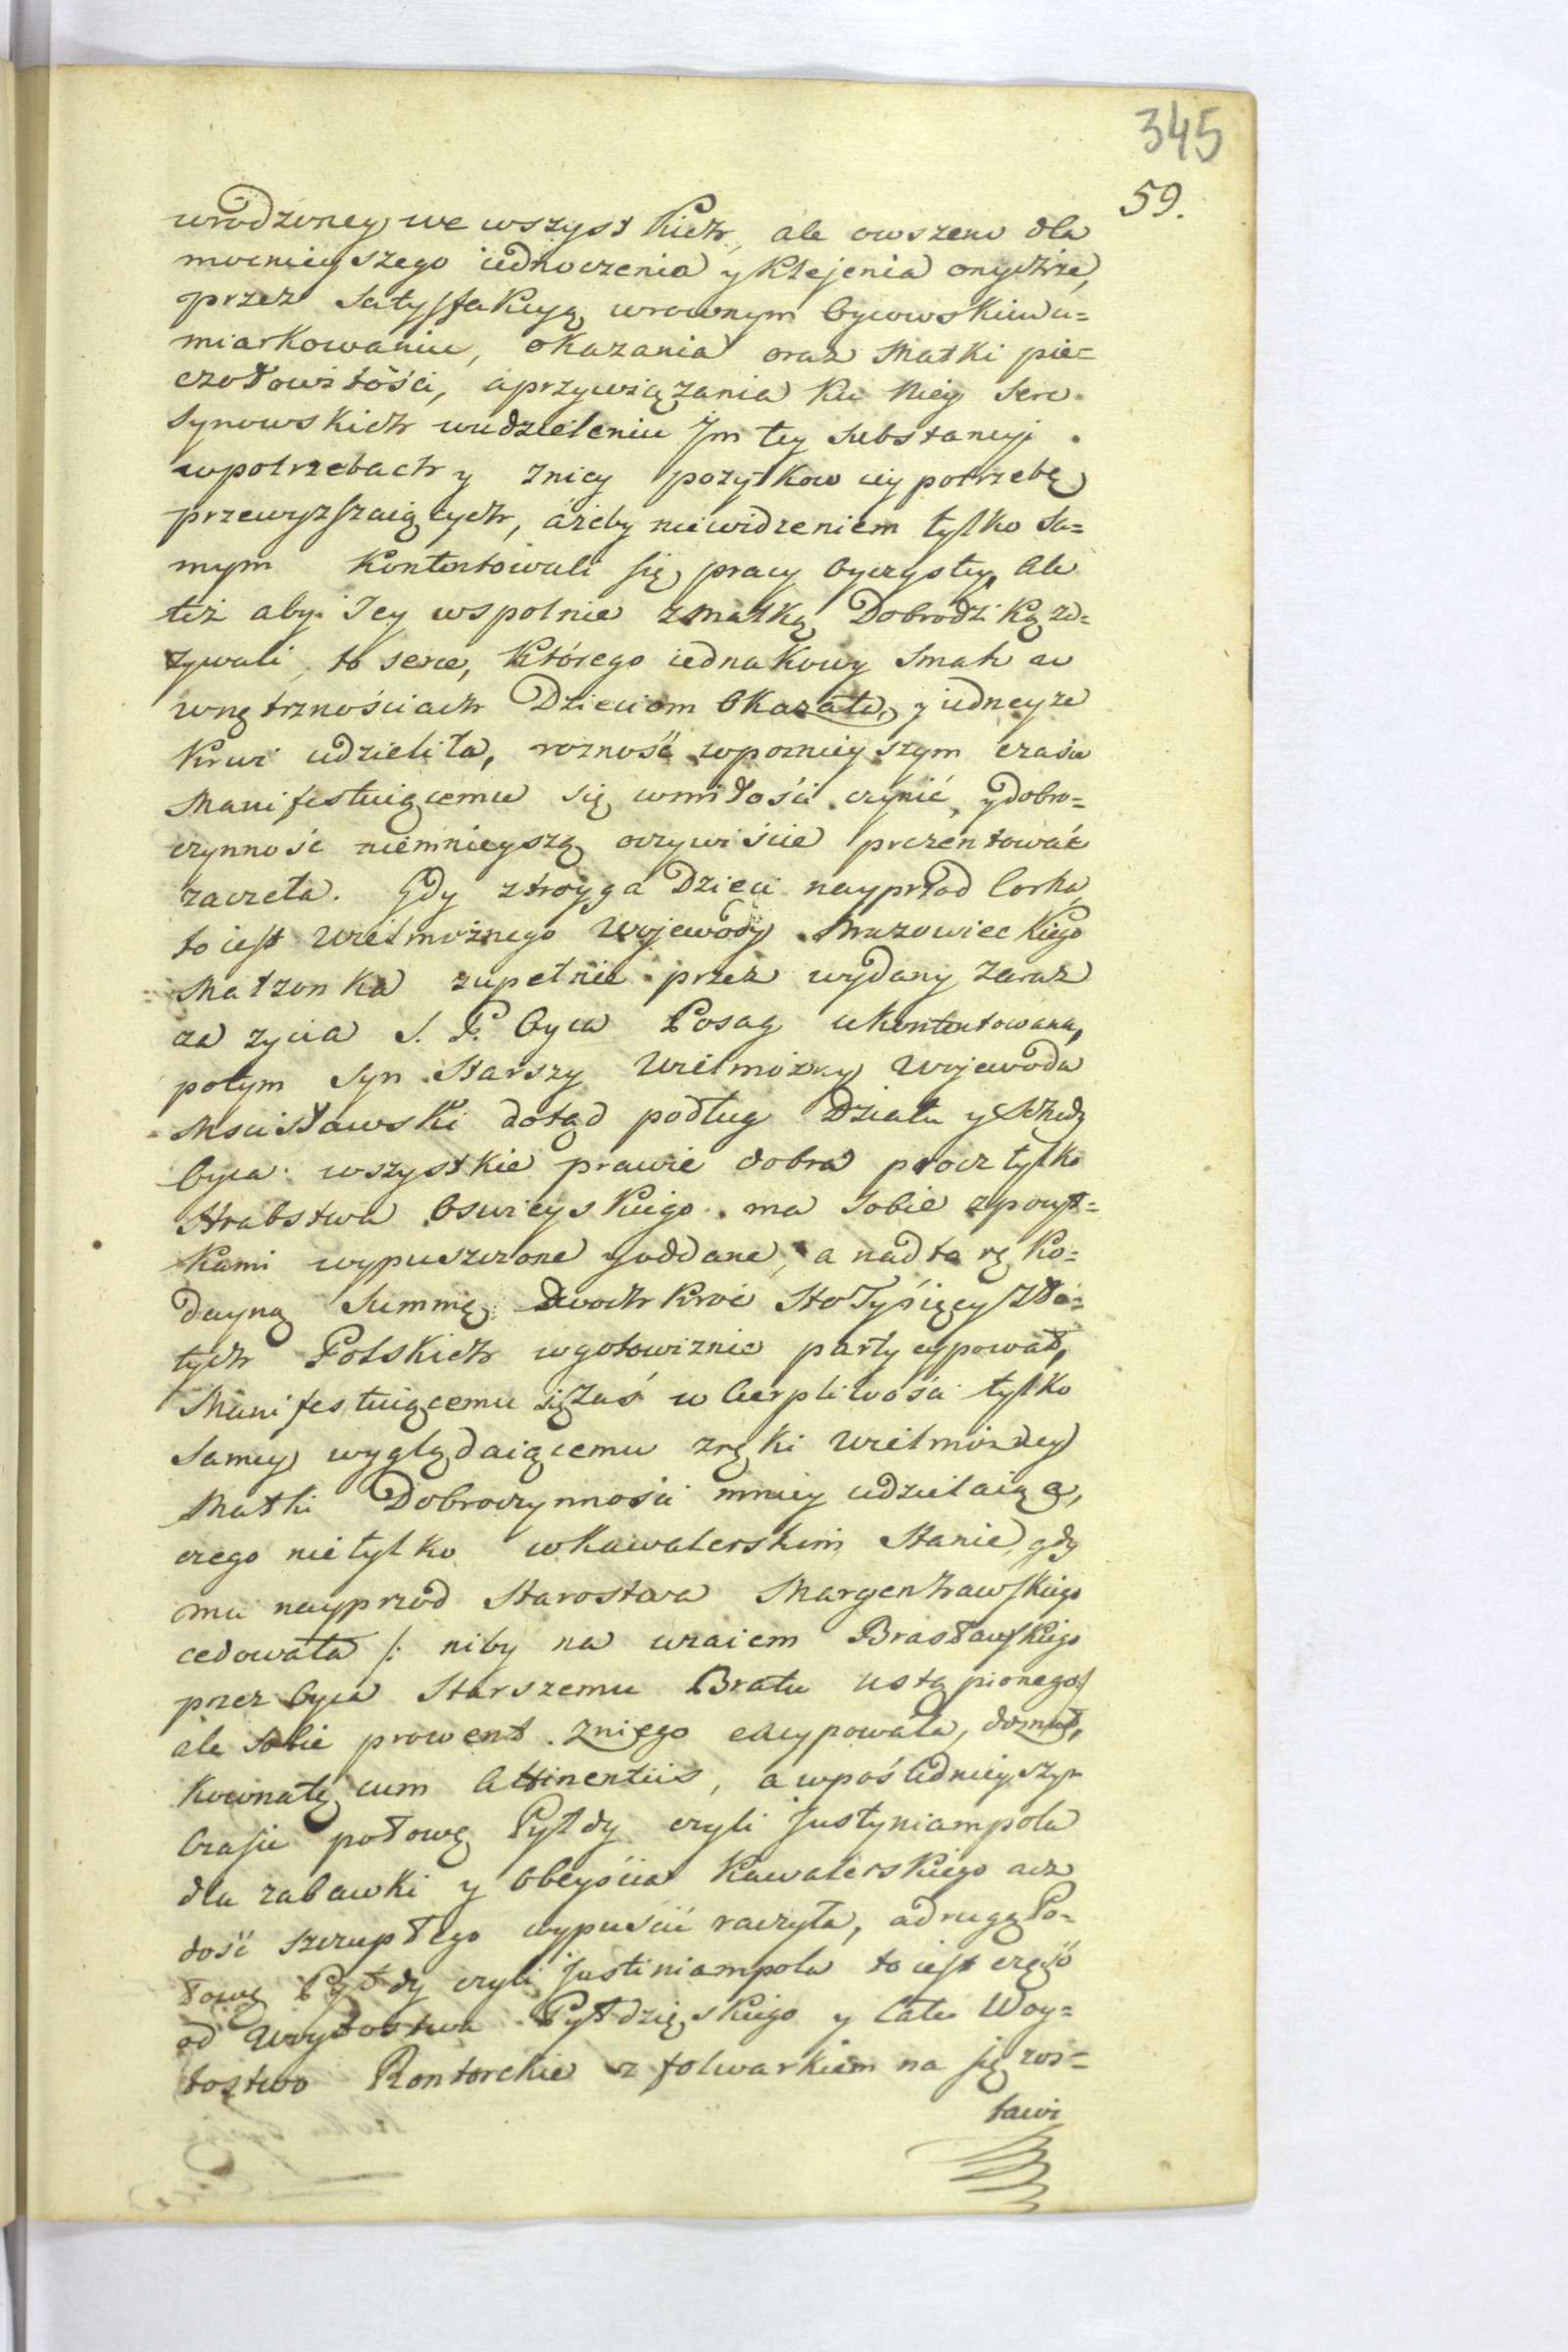 345
59.
wrodzoney we wszystkich, ale owszem dla
mocnieyszego iednoczenia y klejenia onychże,
przez satysfakcyą wrownym Oycowskim u=
miarkowaniu, okazania oraz Matki pie=
czołowitości, a przywiązania ku Niey serc
synowskich wudzieleniu Jm tey substancyi
wpotrzebach y zniey pożytkow iey potrzebę
przewyższaiących, ażeby niewidzeniem tylko sa=
mym kontentowali się pracy Oyczystey, Ale
też aby Jey wspolnie z Matką Dobrodziką za=
żywali, to serce, którego iednakowy smak w
wnętrznościach Dzieciom Okazała, y iedneyże
krwi udzieliła, rożność wpoznieyszym czasie
Manifestuiącemu się wmiłości czynić, y dobro=
czynność niemnieyszą oczywiście prezentować
zaczęła. Gdy ztroyga Dzieci nayprżod Corka,
to iest Wielmożnego Wojewody Mazowieckiego
Małżonka zupełnie przez wydany zaraz
za życia S. P. Oyca Posag ukontentowana,
potym Syn Starszy Wielmożny Wojewoda
Mścisławski dotąd podług Działu y Schedy
Oyca wszystkie prawie dobra procz tylko
Hrabstwa Oswieyskiego ma sobie zpożyt=
kami wypuszczone y oddane, a nadto ręko=
dayną Summę dwoch kroć Sto Tysięcy Zło=
tych Polskich wgotowiznie partycypował,
Manifestuiącemu się Zaś w Cierpliwości tylko
samey wyglądaiącemu zręki Wielmożney
Matki Dobroczynności mniey udzielaiąc,
czego nietylko wkawalerskim Stanie, gdy
mu nayprzod Starostwa Margenhawskiego
cedowała /: niby na wzaiem Brasławskiego
przez Oyca Starszemu Bratu ustąpionego/
ale sobie prowent zniego excypowała, doznał,
Kownatę cum Attinentiis, a wpoślednieyszym
Czasie połowę Pyłdy czyli Justyniampola
dla zabawki y Obeyścia Kawalerskiego acz
dość szczupłego wypuścić raczyła, adrugą Po=
łowę Pyłdy czyli Justiniampola to iest część
od Woytostwa Pyłdzięskiego y Całe Woy=
tostwo Rontorckie z folwarkiem na się zos=
tawi